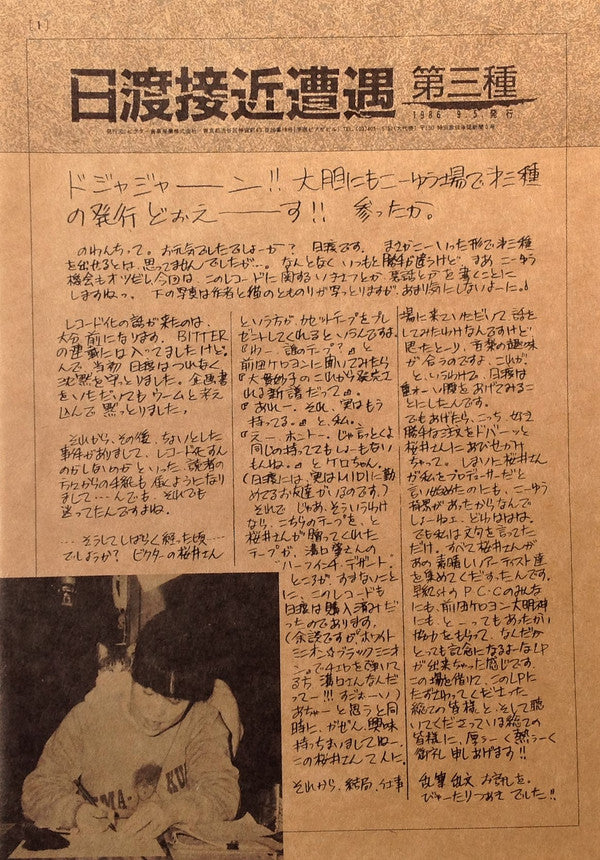 [1]
日渡接近遭遇 第三種
1986. 9.5. 発行
ドジャジャ――ン!! 大胆にもこーゆう場で第三種
の発行 どおえ―――す!! 参ったか。
のわんちって。お元気でしたでしょーか? 日渡です。まさかこーいった形で第三種
を出せるとは、思ってませんでしたが…。なんとなく いつもと勝手が違うけど、まあ こーゆう
機会もオツだし、今回は、このレコードに関するいきさつとか 裏話とかを書くことに
しますねっ。下の写真は作者と猫のとものりが写っとりますが、あまり気にしないよーに。
レコード化の話が来たのは、
大分前になります。BITTER
の連載には入ってましたけど。
んで 当初 日渡はつれなく
沈黙を守っとりました。企画書
をいただいてもウームと考え
込んで黙っとりました。
それから、その後、ちょいとした
事件がありまして、レコード化すん
のかしないのかといった、読者の
方々からの手紙も届くようになり
まして…んでも、それでも
迷ってたんですよね。
……そうしてしばらく経った頃…
でしょうか? ビクターの桜井さん
という方が、カセットテープをプレ
ゼントしてくれるというんですよ。
『わー、誰のテープ?』と
前田ケロヨンに聞いてみたら
『大貫妙子のこれから発売さ
れる新譜だって』。
『あれー。それ、実はもう
持ってる。』と私。
『えー、ホントー。じゃ言っとくよ
同じの持っててもしょーもない
もんね。』とケロちゃん。
(日渡には、実はMIDIに勤
めてるお友達がいるのです。)
それで じゃあ、そういうわけ
なら、こちらのテープを、と
桜井さんが贈ってくれた
テープが、溝口肇さんの
“ハーフインチ・デザート”
ところが、すまないことに
に、このレコードも
日渡は購入済みだ
ったのであります。
(余談ですがホワイト
ミニオン☆ブラックミニオ
ン。で4コロを弾いて
るち 溝口さんなんだ
ってー!!! すごぉーい)
あちゃーと思うと同
時に、がぜん、興味
持っちまいましてねー。
この桜井さんて人に。
それから、結局、仕事
場に来ていただいて 話を
してみたわけなんですけど
思ったとり、音楽の趣味
が 合うのですよ、これが
と、いうわけで、日渡は
重～い腰をあげてみるこ
とにしたんです。
でもあげたら、こっち 好き
勝手な注文をドバーッと
桜井さんにあびせかけ
ちゃって。しまいに桜井さん
が私をプロデューサーだと
言い始めたのにも、こーゆう
背景があったからなんで
しょーねェ、どわははは。
でも私は文句を言ってた
だけ。すべて桜井さんが
あの素晴しいアーティスト達
を集めてくださったんです。
早紀ガのP.C.Cのみんな
にも、前田ケロヨン大明神
にも、とーってもあたたかい
協力をもらって、なんだか
とっても記念になるよーなLP
が出来ちゃった感じです。
この場を借りて、このLPに
たずさわってくださった
総ての皆様と、そして聴
いてくださっている総ての
皆様に、厚ぅーく 熱ぅーく
御礼 申しあげます!!
乱筆乱文 お許しを。
ぴゃーたりつおき でした!!